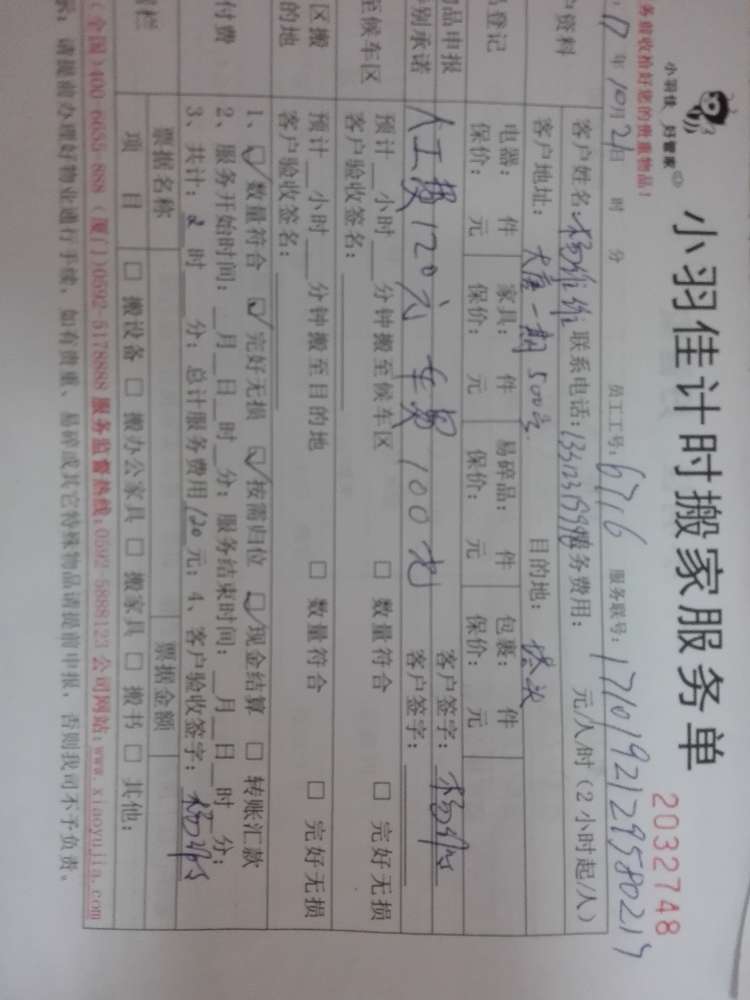 小羽佳 好管家
小羽佳计时搬家服务单
2032748
务前收拾好您的贵重物品！
17年10月21日 时 分 员工工号：6716 服务联号：
户资料
客户姓名： 联系电话： 服务费用： 元/人/时（2小时起/人）
客户地址： 一期500号 目的地：
登记
电器： 件 家具： 件 易碎品： 件 包裹： 件
保价： 元 保价： 元 保价： 元 保价： 元
物品申报
客户签字：
别承诺
人工费120元 车费100元 客户签字：
至候车区
预计__小时__分钟搬至候车区 □ 数量符合 □ 完好无损
客户验收签名：
区搬
的地
预计__小时__分钟搬至目的地 □ 数量符合 □ 完好无损
客户验收签名：
付费
1、☑数量符合 ☑完好无损 ☑按需归位 ☑现金结算 □ 转账汇款
2、服务开始时间：__月__日__时__分；服务结束时间：__月__日__时__分；
3、共计：2时__分；总计服务费用120元；4、客户验收签字：
票据名称 票据金额
项 目 □ 搬设备 □ 搬办公家具 □ 搬家具 □ 搬书 □ 其他：
（全国）400-6655-888（厦门）0592-5178888 服务监督热线：0592-5888123 公司网站：www.xiaoyujia.com
示：请提前办理好物业通行手续，如有贵重、易碎或其它特殊物品请提前申报，否则我司不予负责。